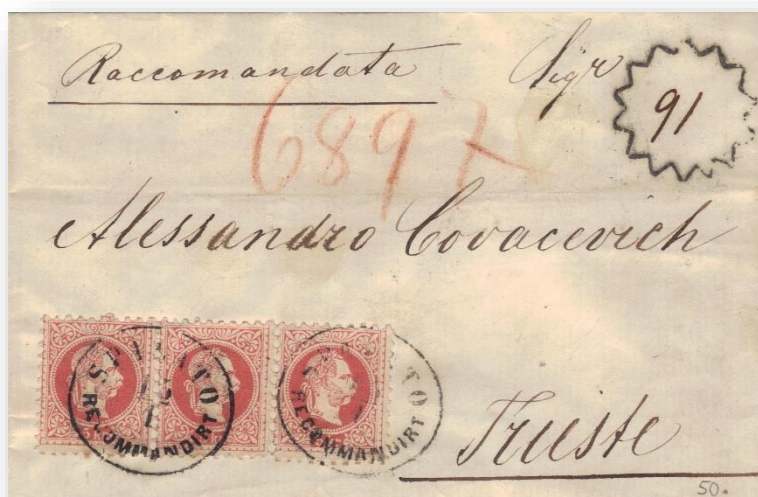 Raccomandata Sigr
91
6897
Alessandro Covacevich
RECOMMANDIRT
RECOMMANDIRT
Trieste
50.